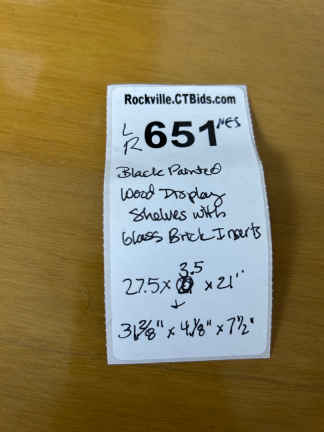 Rockville.CTBids.com
LR 651 NES
Black Painted
Wood Display
Shelves with
Glass Brick Inserts
3.5
27.5 x x 21"
+
31 3/8" x 4 1/8" x 7 1/2"